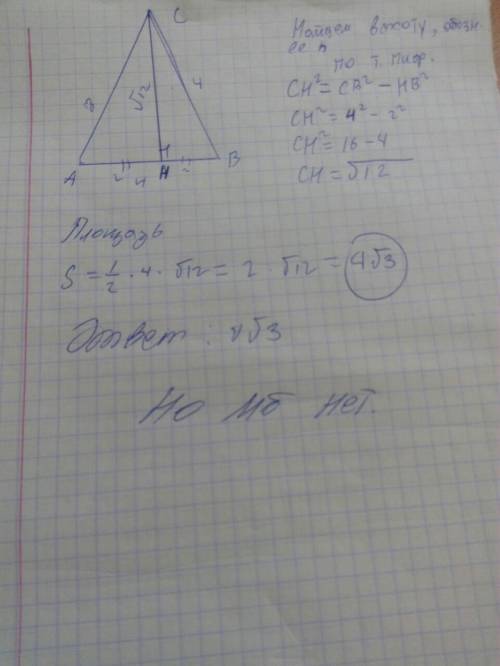 C
4
√12
A
H
B
2
4
H
2
Найдем высоту, обозн.
ее h
по т. пиф.
CH² = CB² − HB²
CH² = 4² − 2²
CH² = 16 − 4
CH = √12
Площадь
S = 1/2 · 4 · √12 = 2 · √12 = 4√3
Ответ: 4√3
Но мб нет.